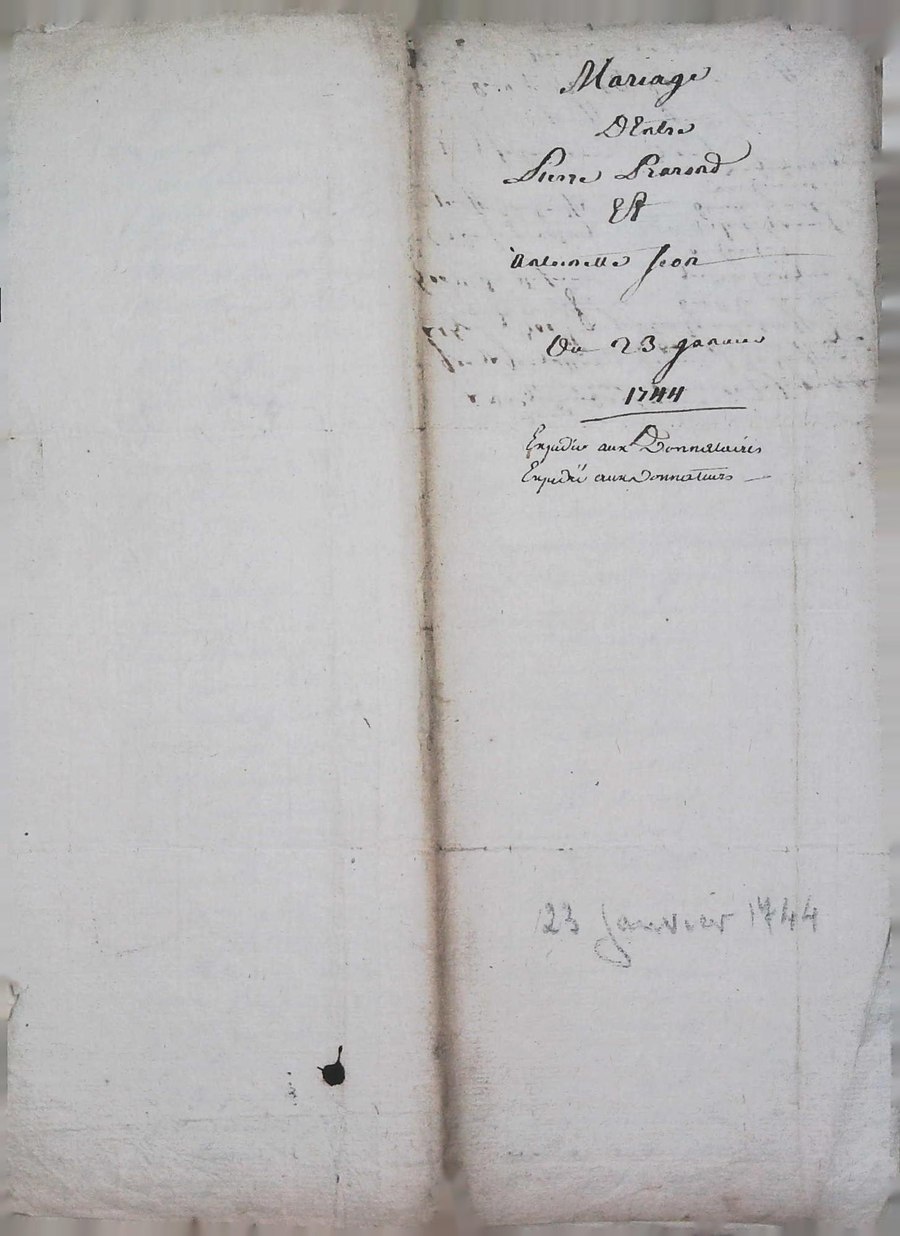 Mariage
D'Entre
Pierre Prarond
Et
Antoinette Jeon
Du 23 janvier
1744
Expedié aux Donnataires
Expedié aux Donnateurs
23 janvier 1744